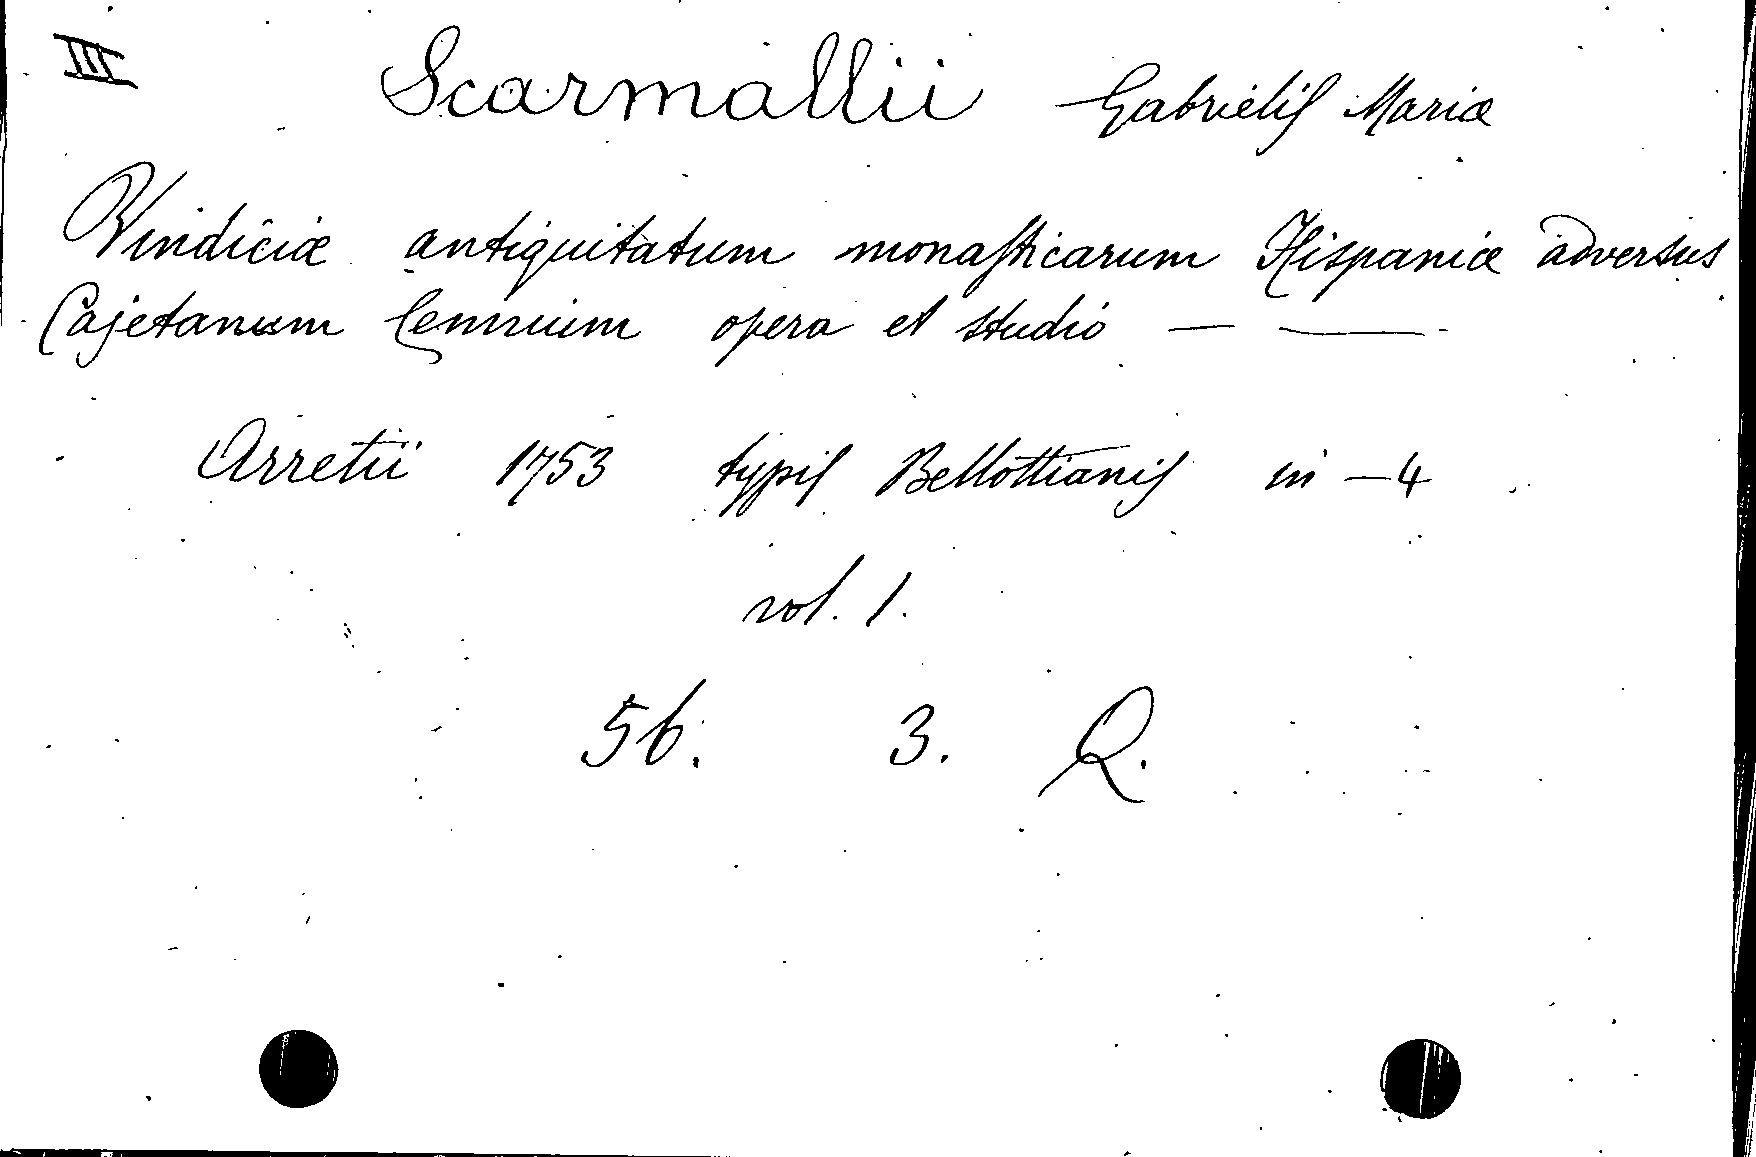 III
Scarmallii Gabrielis Mariæ
Vindiciæ antiquitatum monasticarum Hispaniæ adversus
Cajetanum Cennium opera et studio — —
Arretii 1753 typis Bellottianis in – 4
vol. 1.
56. 3. Q.